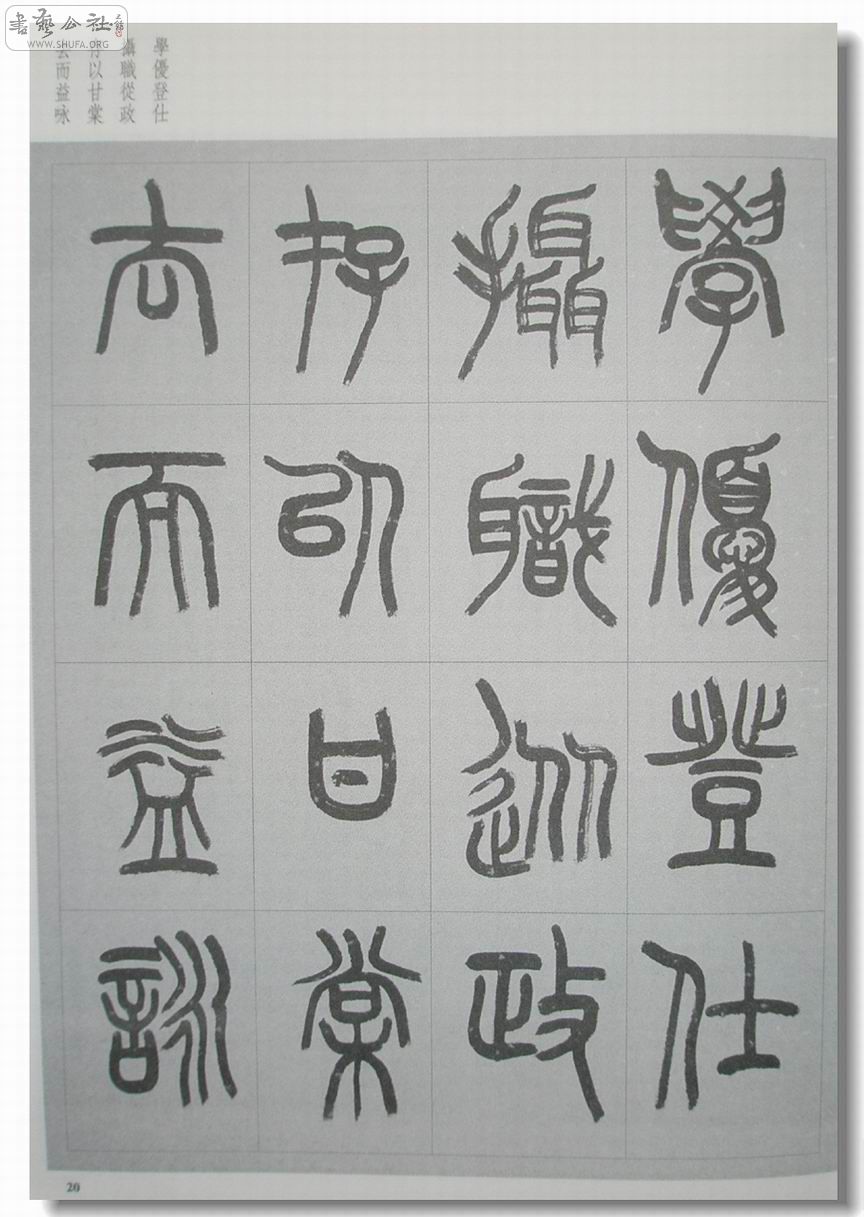 書藝公社
WWW.SHUFA.ORG
學優登仕
攝職從政
存以甘棠
去而益咏
學優登仕
攝職從政
存以甘棠
去而益詠
20